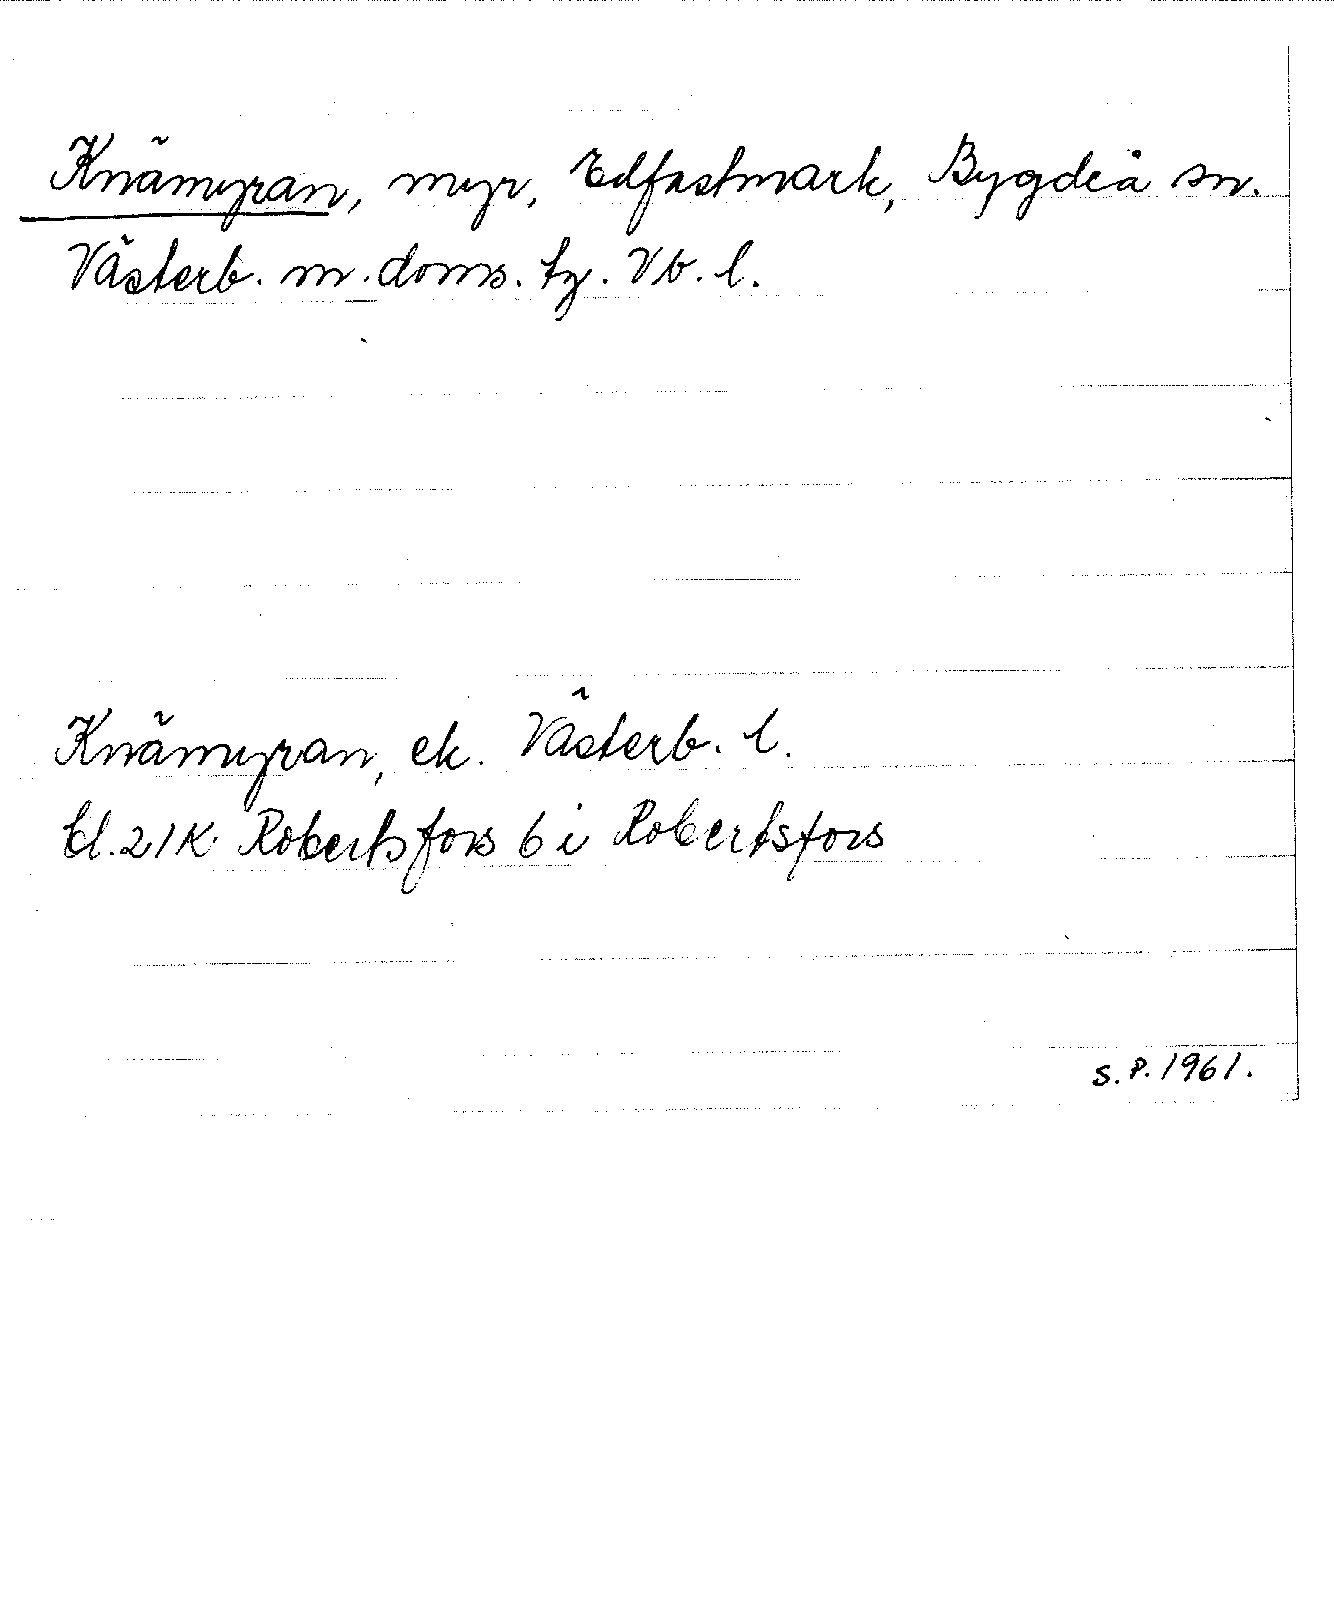 Knämyran, myr, Edfastmark, Bygdeå sn.
Västerb. m. doms. tg. Vb. l.
Knämyran, ek. Västerb. l.
bl. 21K Robertsfors 6 i Robertsfors
S.P. 1961.